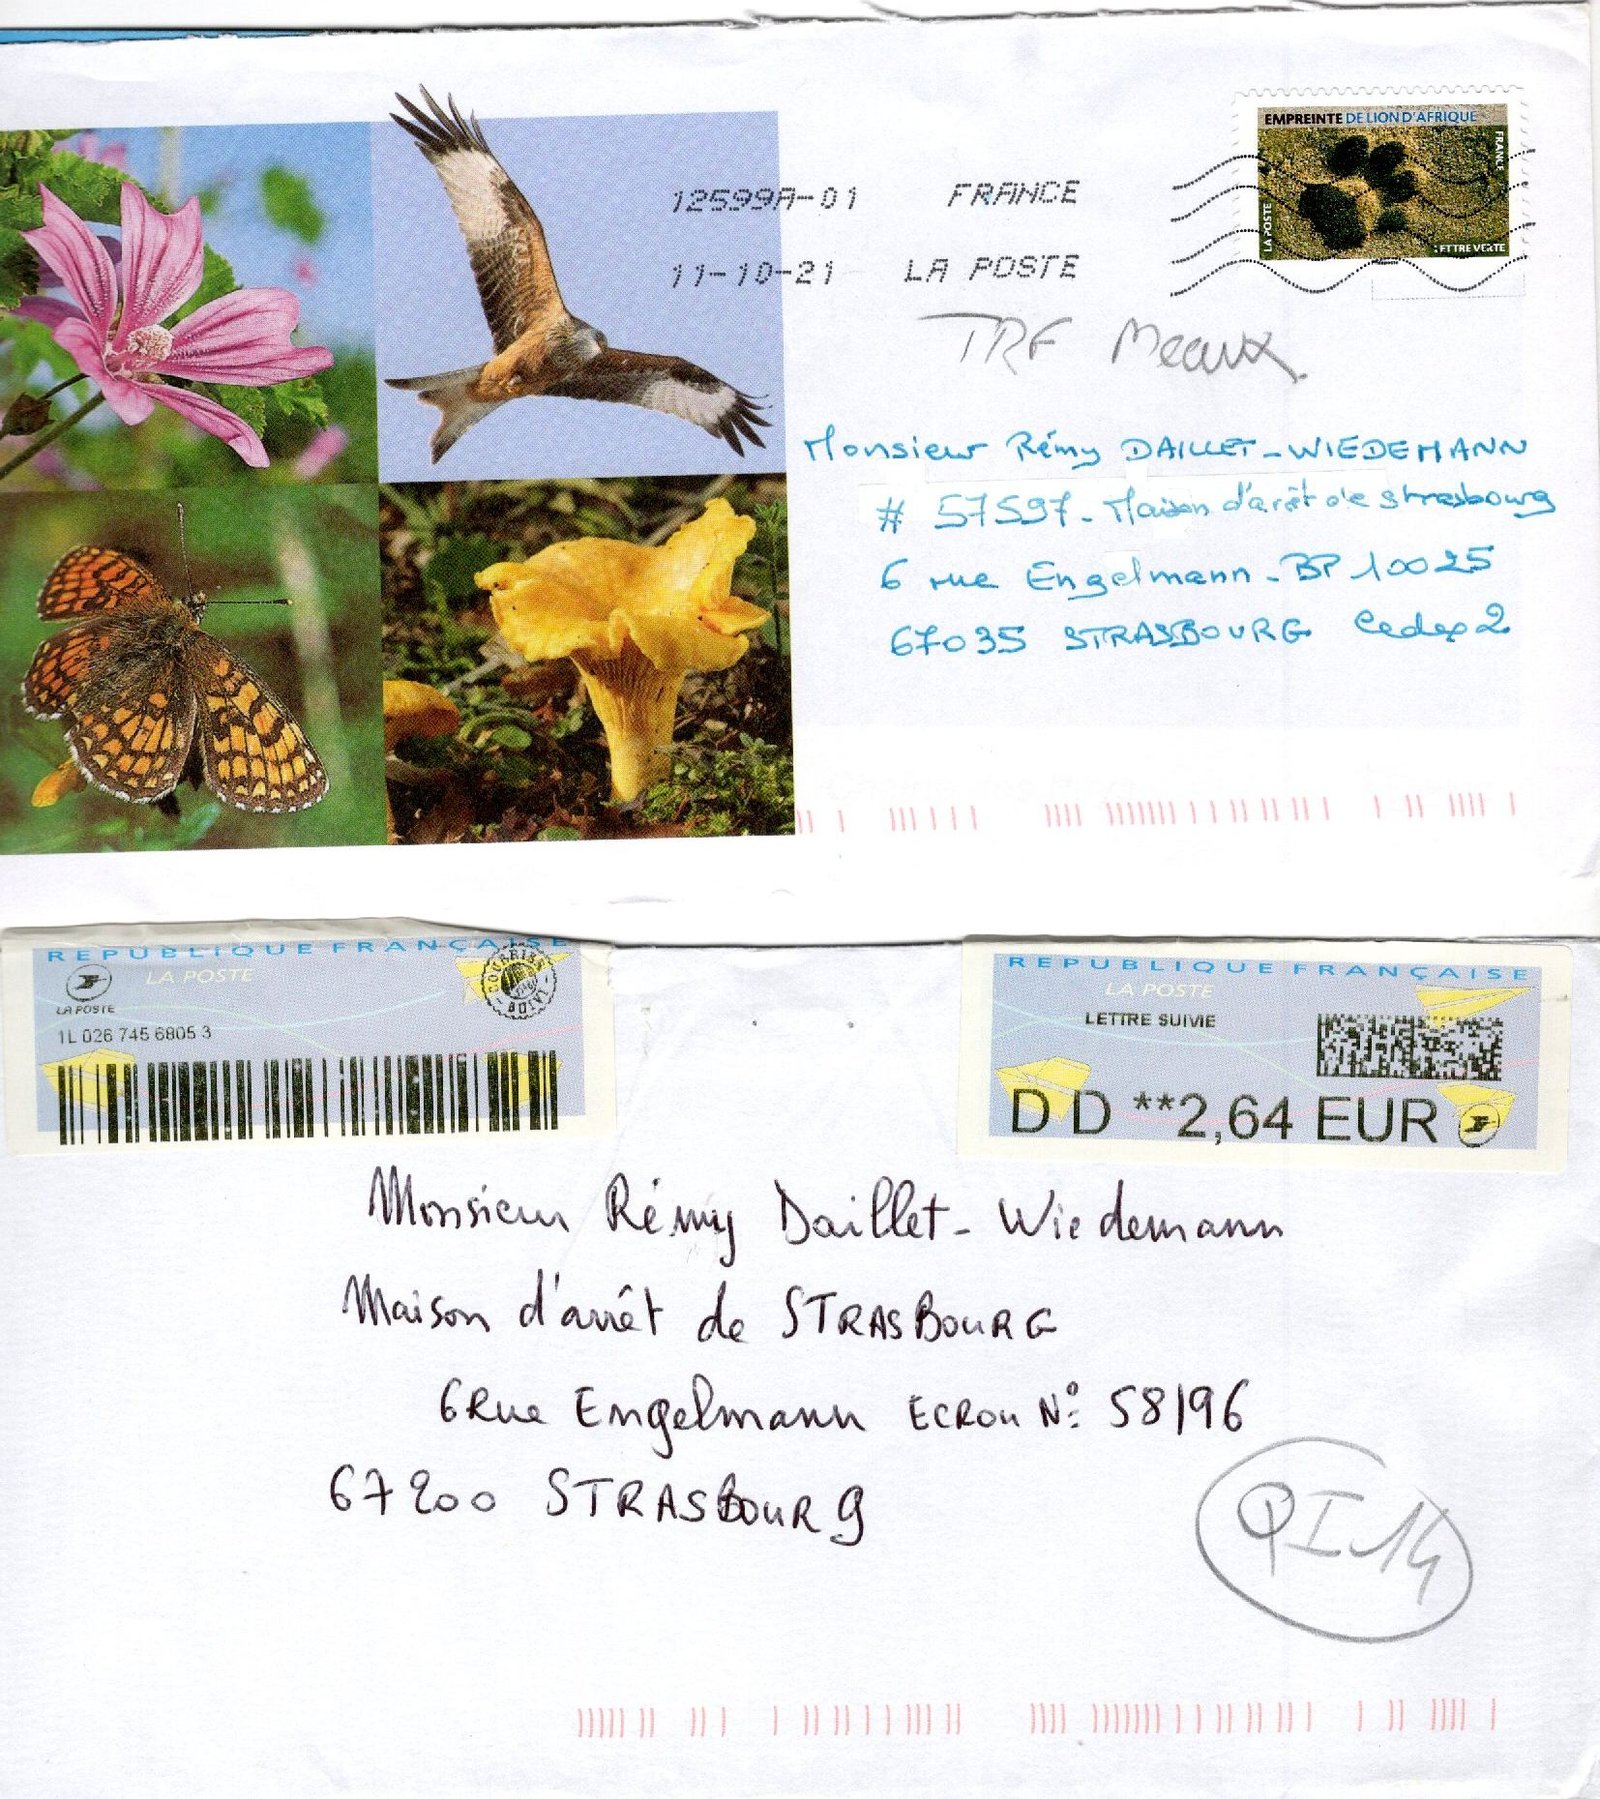 EMPREINTE DE LION D'AFRIQUE
FRANCE
LA POSTE
LETTRE VERTE
12599A-01 FRANCE
11-10-21 LA POSTE
TRF Meaux
Monsieur Rémy DAILLET-WIEDEMANN
# 57597 - Maison d'arrêt de Strasbourg
6 rue Engelmann - BP 10025
67035 STRASBOURG Cedex 2
REPUBLIQUE FRANÇAISE
LA POSTE
LA POSTE
1L 026 745 6805 3
REPUBLIQUE FRANÇAISE
LA POSTE
LETTRE SUIVIE
DD **2,64 EUR
Monsieur Rémy Daillet-Wiedemann
Maison d'arrêt de STRASBOURG
6 Rue Engelmann ECROU N° 58196
67200 STRASBOURG
QI 14